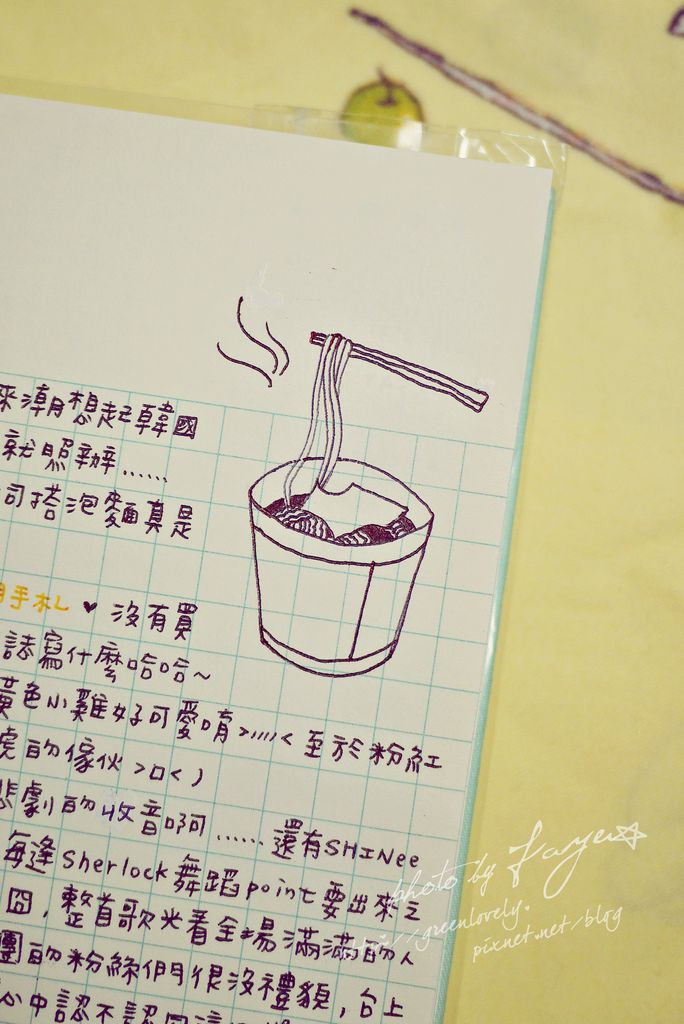 來潮想起韓國
就照辦……
司搭泡麵真是
手札 ♥ 沒有買
誌寫什麼哈哈~
黃色小雞好可愛唷>/////< 至於粉紅
虎的傢伙>口<)
悲劇的收音啊…… 還有SHINee
每逢Sherlock舞蹈point要出來之
囧,整首歌光看全場滿滿的人
團的粉絲們很沒禮貌,台上
心中認不認同這
photo by Faye☆
http://greenlovely.
pixnet.net/blog